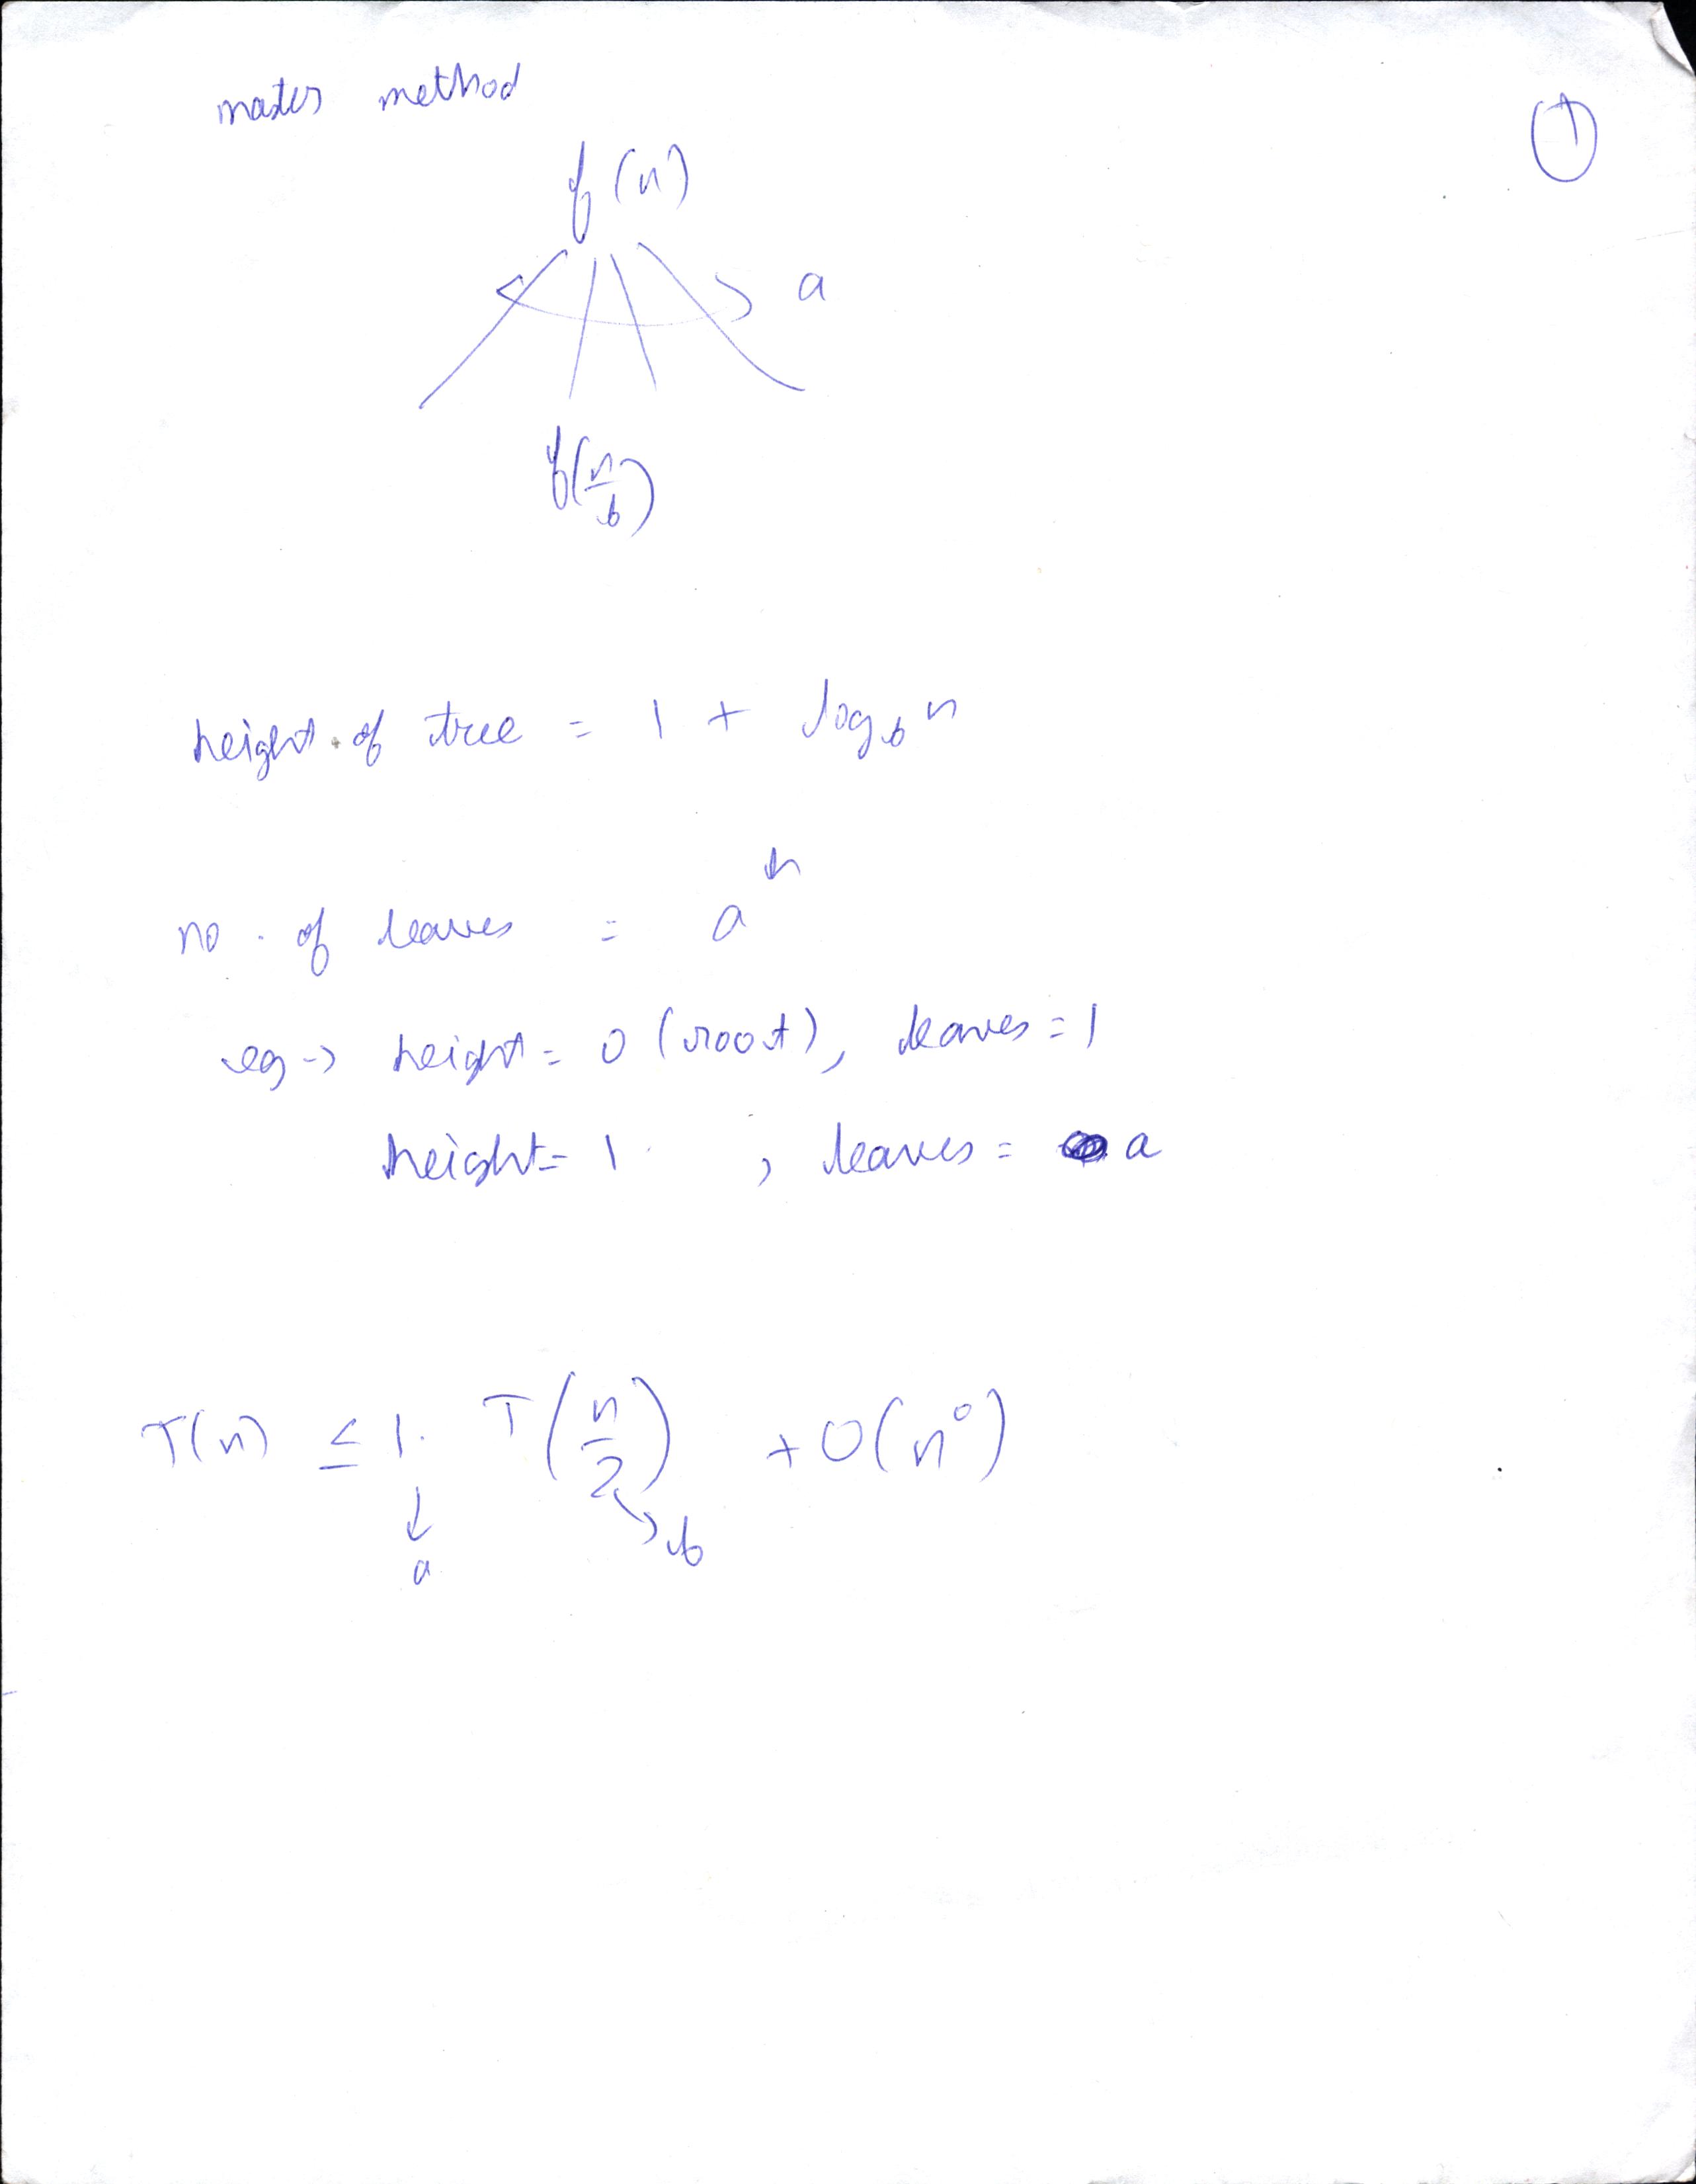 master method
①
f(n)
a
f(n/b)
height of tree = 1 + log_b n
no. of leaves = a^h
eg → height = 0 (root), leaves = 1
height = 1 , leaves = a
T(n) ≤ 1. T(n/2) + O(n^0)
a b